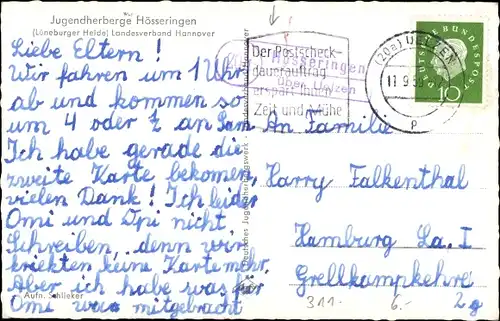 Jugendherberge Hösseringen
(Lüneburger Heide) Landesverband Hannover
Liebe Eltern!
Wir fahren um 1 Uhr
ab und kommen so
um 4 oder ½ an
Ich habe gerade die
zweite Karte bekommen,
vielen Dank! Ich leider
Omi und Opi nicht
Schreiben, denn wir
kriekten keine Karte mehr.
Aber ich habe was für
Omi was mitgebracht
Aufn. Schlieker
Hösseringen
über Uelzen
Der Postscheck-
dauerauftrag
erspart Ihnen
Zeit und Mühe
(20a) UELZEN
11.9.59
p
DEUTSCHE BUNDESPOST
10
An Familie
Harry Falkenthal
Hamburg La. I
Grellkampkehre
2 g
311.-
6.-